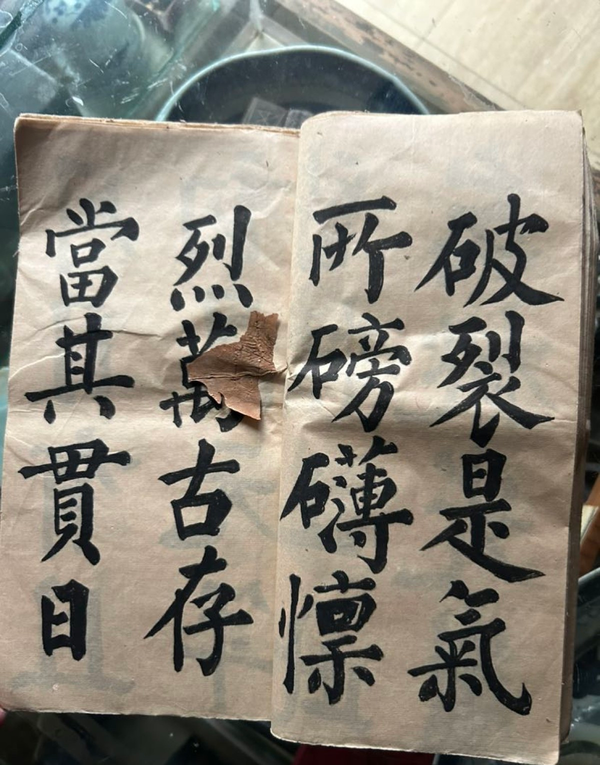 破裂是氣
所磅礴凜
烈萬古存
當其貫日